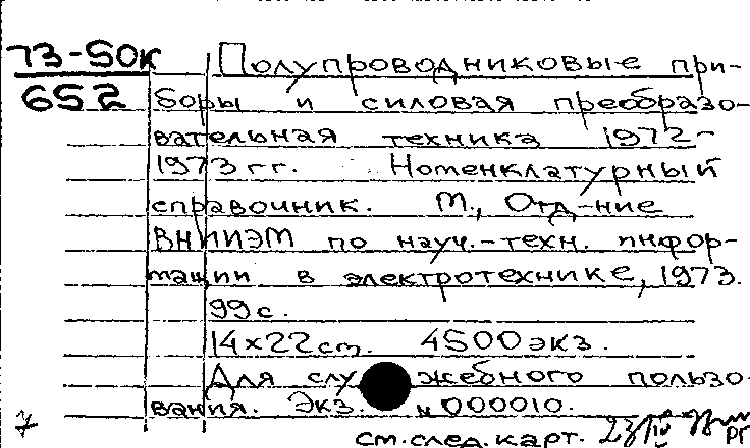 73-50к
652
Полупроводниковые при-
боры и силовая преобразо-
вательная техника 1972-
1973 гг. Номенклатурный
справочник. М., Отд-ние
ВНИИЭМ по науч.-техн. инфор-
мации в электротехнике, 1973.
99 с.
14x22 см. 4500 экз.
Для служебного пользо-
вания. Экз. N 000010.
см. след. карт.